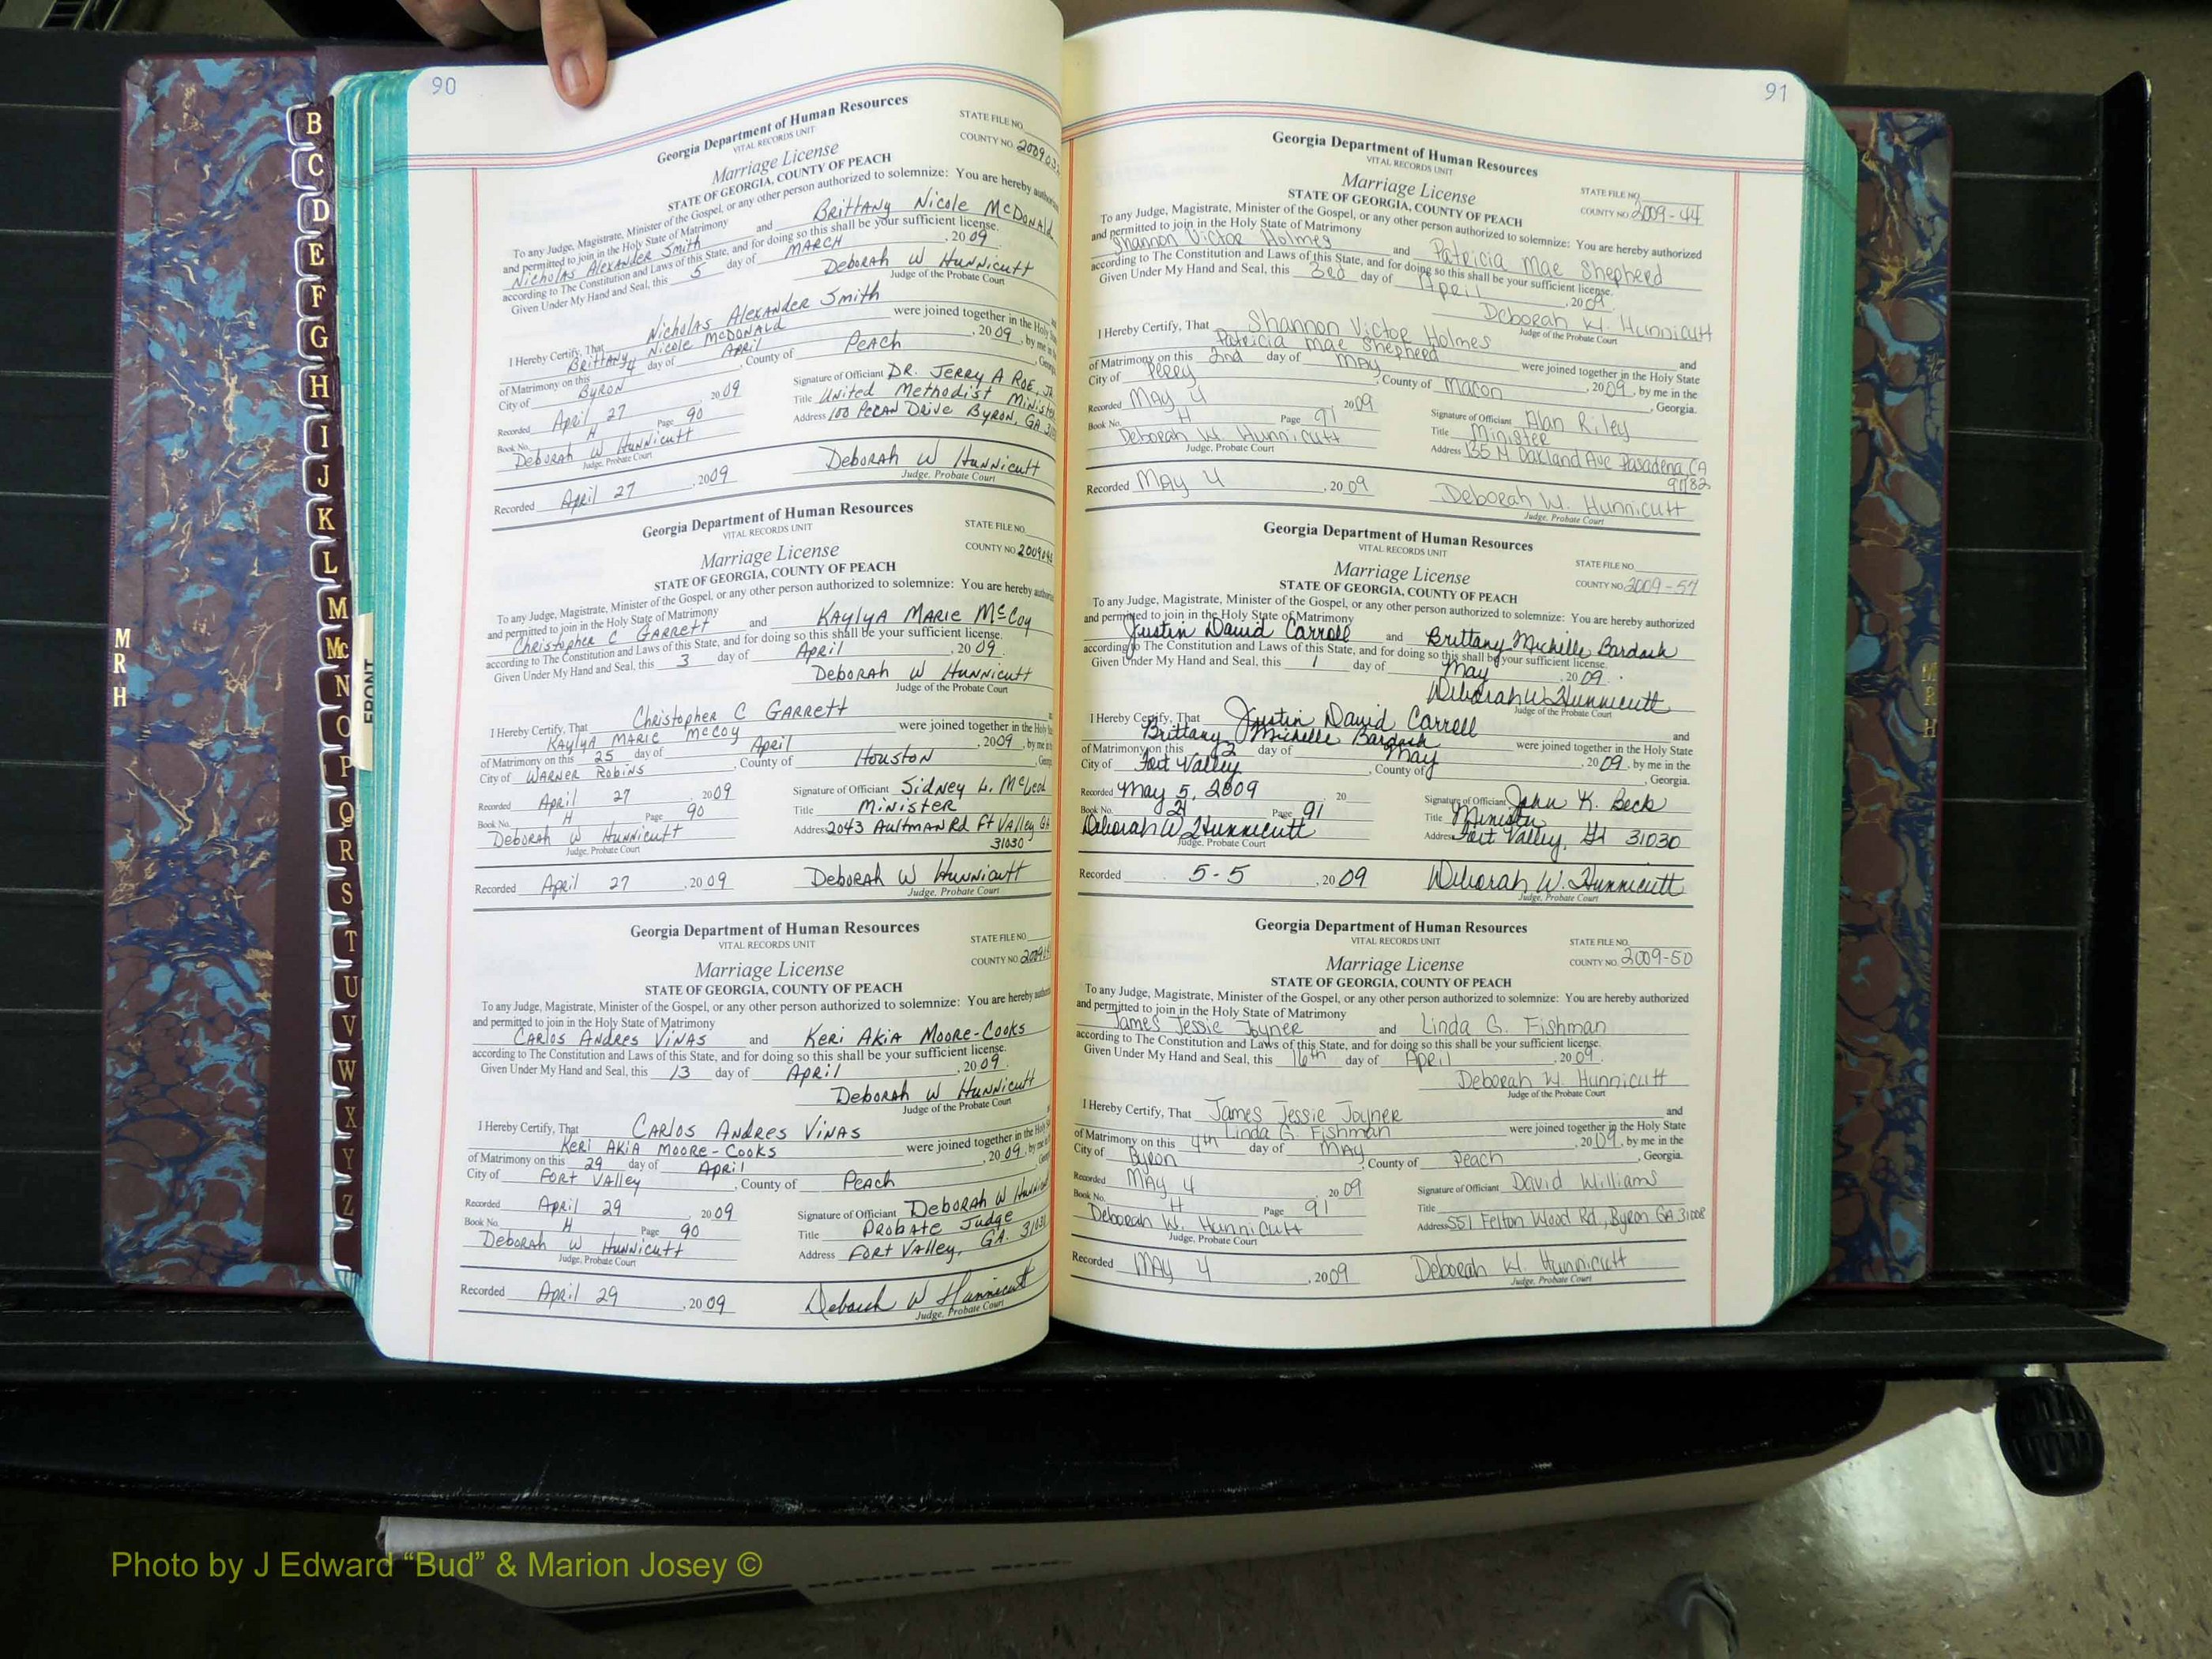 90
Georgia Department of Human Resources
VITAL RECORDS UNIT
STATE FILE NO.
COUNTY NO.
Marriage License
STATE OF GEORGIA, COUNTY OF PEACH
To any Judge, Magistrate, Minister of the Gospel, or any other person authorized to solemnize: You are hereby
and permitted to join in the Holy State of Matrimony
Nicholas Alexander Smith and Brittany Nicole McDonald
according to The Constitution and Laws of this State, and for doing so this shall be your sufficient license.
Given Under My Hand and Seal, this 5 day of MARCH, 2009
Deborah W Hunnicutt
Judge of the Probate Court
I Hereby Certify, That Nicholas Alexander Smith
Brittany Nicole McDonald were joined together in the Holy
of Matrimony on this 4 day of April, 2009, by me
City of BYRON, County of Peach
Recorded April 27 2009 Signature of Officiant DR. JERRY A ROE, JR
Book No. H Page 90 Title United Methodist Minister
Deborah W Hunnicutt Address 100 PECAN Drive BYRON, GA
Judge, Probate Court
Recorded April 27, 2009 Deborah W Hunnicutt
Judge, Probate Court
Georgia Department of Human Resources
VITAL RECORDS UNIT
STATE FILE NO.
COUNTY NO.
Marriage License
STATE OF GEORGIA, COUNTY OF PEACH
To any Judge, Magistrate, Minister of the Gospel, or any other person authorized to solemnize: You are hereby
and permitted to join in the Holy State of Matrimony
Christopher C GARRETT and KAYLYA MARIE McCoy
according to The Constitution and Laws of this State, and for doing so this shall be your sufficient license.
Given Under My Hand and Seal, this 3 day of April, 2009
Deborah W Hunnicutt
Judge of the Probate Court
I Hereby Certify, That Christopher C GARRETT
KAYLYA MARIE McCoy were joined together in the Holy
of Matrimony on this 25 day of April, 2009, by me
City of WARNER Robins, County of Houston
Recorded April 27 2009 Signature of Officiant Sidney L. McLeod
Book No. H Page 90 Title Minister
Deborah W Hunnicutt Address 2043 AultMAN Rd Ft Valley GA
Judge, Probate Court 31030
Recorded April 27, 2009 Deborah W Hunnicutt
Judge, Probate Court
Georgia Department of Human Resources
VITAL RECORDS UNIT
STATE FILE NO.
COUNTY NO.
Marriage License
STATE OF GEORGIA, COUNTY OF PEACH
To any Judge, Magistrate, Minister of the Gospel, or any other person authorized to solemnize: You are hereby
and permitted to join in the Holy State of Matrimony
CARLOS ANDRES VINAS and KERI AKIA MOORE-COOKS
according to The Constitution and Laws of this State, and for doing so this shall be your sufficient license.
Given Under My Hand and Seal, this 13 day of April, 2009
Deborah W Hunnicutt
Judge of the Probate Court
I Hereby Certify, That CARLOS ANDRES VINAS
KERI AKIA MOORE-COOKS were joined together in the Holy
of Matrimony on this 29 day of April, 2009, by me
City of FORT VAlley, County of Peach
Recorded April 29 2009 Signature of Officiant Deborah W
Book No. H Page 90 Title Probate Judge
Deborah W Hunnicutt Address FORT VAlley, GA.
Judge, Probate Court
Recorded April 29, 2009 Deborah W Hunnicutt
Judge, Probate Court
91
Georgia Department of Human Resources
VITAL RECORDS UNIT
STATE FILE NO.
Marriage License
COUNTY NO. 2009-44
STATE OF GEORGIA, COUNTY OF PEACH
To any Judge, Magistrate, Minister of the Gospel, or any other person authorized to solemnize: You are hereby authorized
and permitted to join in the Holy State of Matrimony
Shannon Victor Holmes and Patricia Mae Shepherd
according to The Constitution and Laws of this State, and for doing so this shall be your sufficient license.
Given Under My Hand and Seal, this 3rd day of April, 2009.
Deborah W. Hunnicutt
Judge of the Probate Court
I Hereby Certify, That Shannon Victor Holmes and
Patricia Mae Shepherd were joined together in the Holy State
of Matrimony on this 2nd day of May, 2009, by me in the
City of Perry, County of Macon, Georgia.
Recorded May 4 2009 Signature of Officiant Alan Riley
Book No. H Page 91 Title Minister
Deborah W. Hunnicutt Address 135 N Oakland Ave Pasadena, CA
Judge, Probate Court 91182
Recorded May 4, 2009 Deborah W. Hunnicutt
Judge, Probate Court
Georgia Department of Human Resources
VITAL RECORDS UNIT
STATE FILE NO.
Marriage License
COUNTY NO. 2009-57
STATE OF GEORGIA, COUNTY OF PEACH
To any Judge, Magistrate, Minister of the Gospel, or any other person authorized to solemnize: You are hereby authorized
and permitted to join in the Holy State of Matrimony
Justin David Carroll and Brittany Michelle Bardack
according to The Constitution and Laws of this State, and for doing so this shall be your sufficient license.
Given Under My Hand and Seal, this 1 day of May, 2009.
Deborah W. Hunnicutt
Judge of the Probate Court
I Hereby Certify, That Justin David Carroll and
Brittany Michelle Bardack were joined together in the Holy State
of Matrimony on this day of May, 2009, by me in the
City of Fort Valley, County of, Georgia.
Recorded May 5, 2009 20 Signature of Officiant John K. Beck
Book No. Page 91 Title Minister
Deborah W Hunnicutt Address Fort Valley, GA 31030
Judge, Probate Court
Recorded 5-5, 2009 Deborah W. Hunnicutt
Judge, Probate Court
Georgia Department of Human Resources
VITAL RECORDS UNIT
STATE FILE NO.
Marriage License
COUNTY NO. 2009-50
STATE OF GEORGIA, COUNTY OF PEACH
To any Judge, Magistrate, Minister of the Gospel, or any other person authorized to solemnize: You are hereby authorized
and permitted to join in the Holy State of Matrimony
James Jessie Joyner and Linda G. Fishman
according to The Constitution and Laws of this State, and for doing so this shall be your sufficient license.
Given Under My Hand and Seal, this 16th day of April, 2009.
Deborah W. Hunnicutt
Judge of the Probate Court
I Hereby Certify, That James Jessie Joyner and
Linda G. Fishman were joined together in the Holy State
of Matrimony on this 4th day of May, 2009, by me in the
City of Byron, County of Peach, Georgia.
Recorded May 4 2009 Signature of Officiant David Williams
Book No. H Page 91 Title
Deborah W. Hunnicutt Address 551 Felton Wood Rd., Byron GA 31008
Judge, Probate Court
Recorded May 4, 2009 Deborah W. Hunnicutt
Judge, Probate Court
B
C
D
E
F
G
H
I
J
K
L
M
Mc
N
O
P
Q
R
S
T
U
V
W
X
Y
Z
FRONT
M
R
H
M
R
H
Photo by J Edward “Bud” & Marion Josey ©